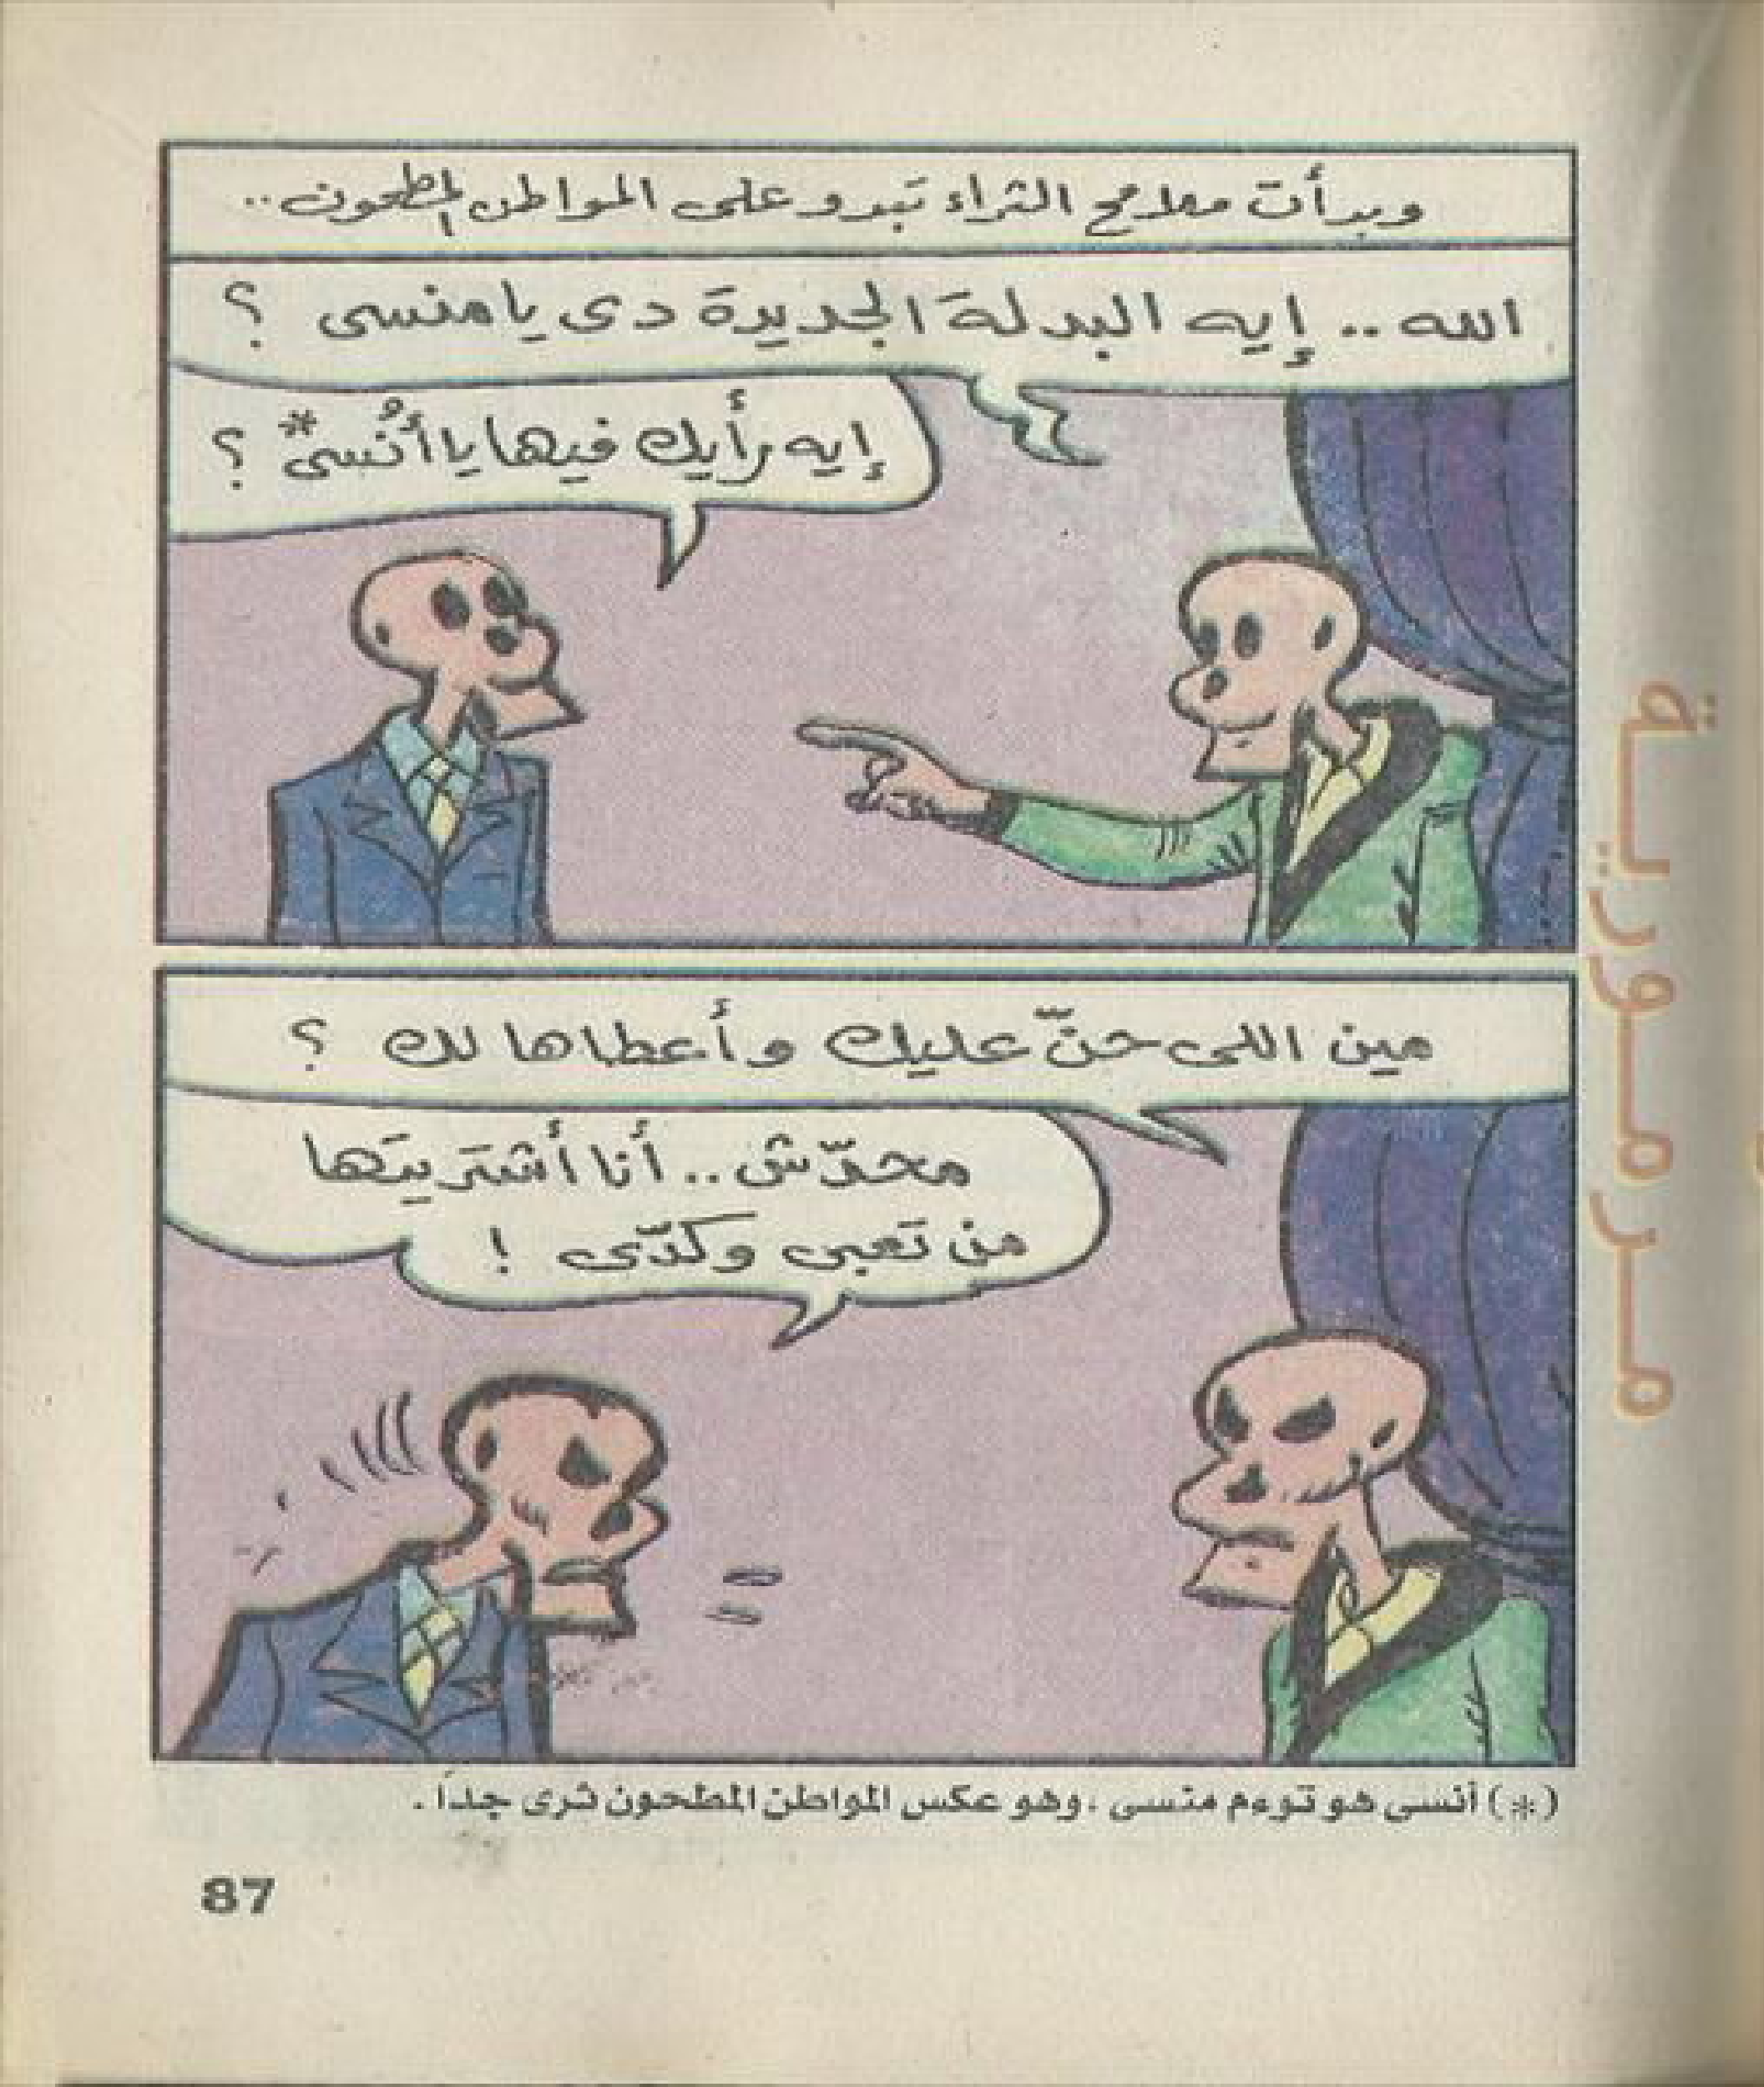 وبدأت ملامح الثراء تَبدو على المواطن المطحون..
الله .. إيه البدلة الجديدة دى يا منسى ؟
إيه رأيك فيها يا أُنسى* ؟
مين اللى حنّ عليك وأعطاها لك ؟
محدّش .. أنا أشتريتها
من تعبى وكدّى !
(*) أنسى هو توءم منسى ، وهو عكس المواطن المطحون ثرى جداً .
87
مرمورية